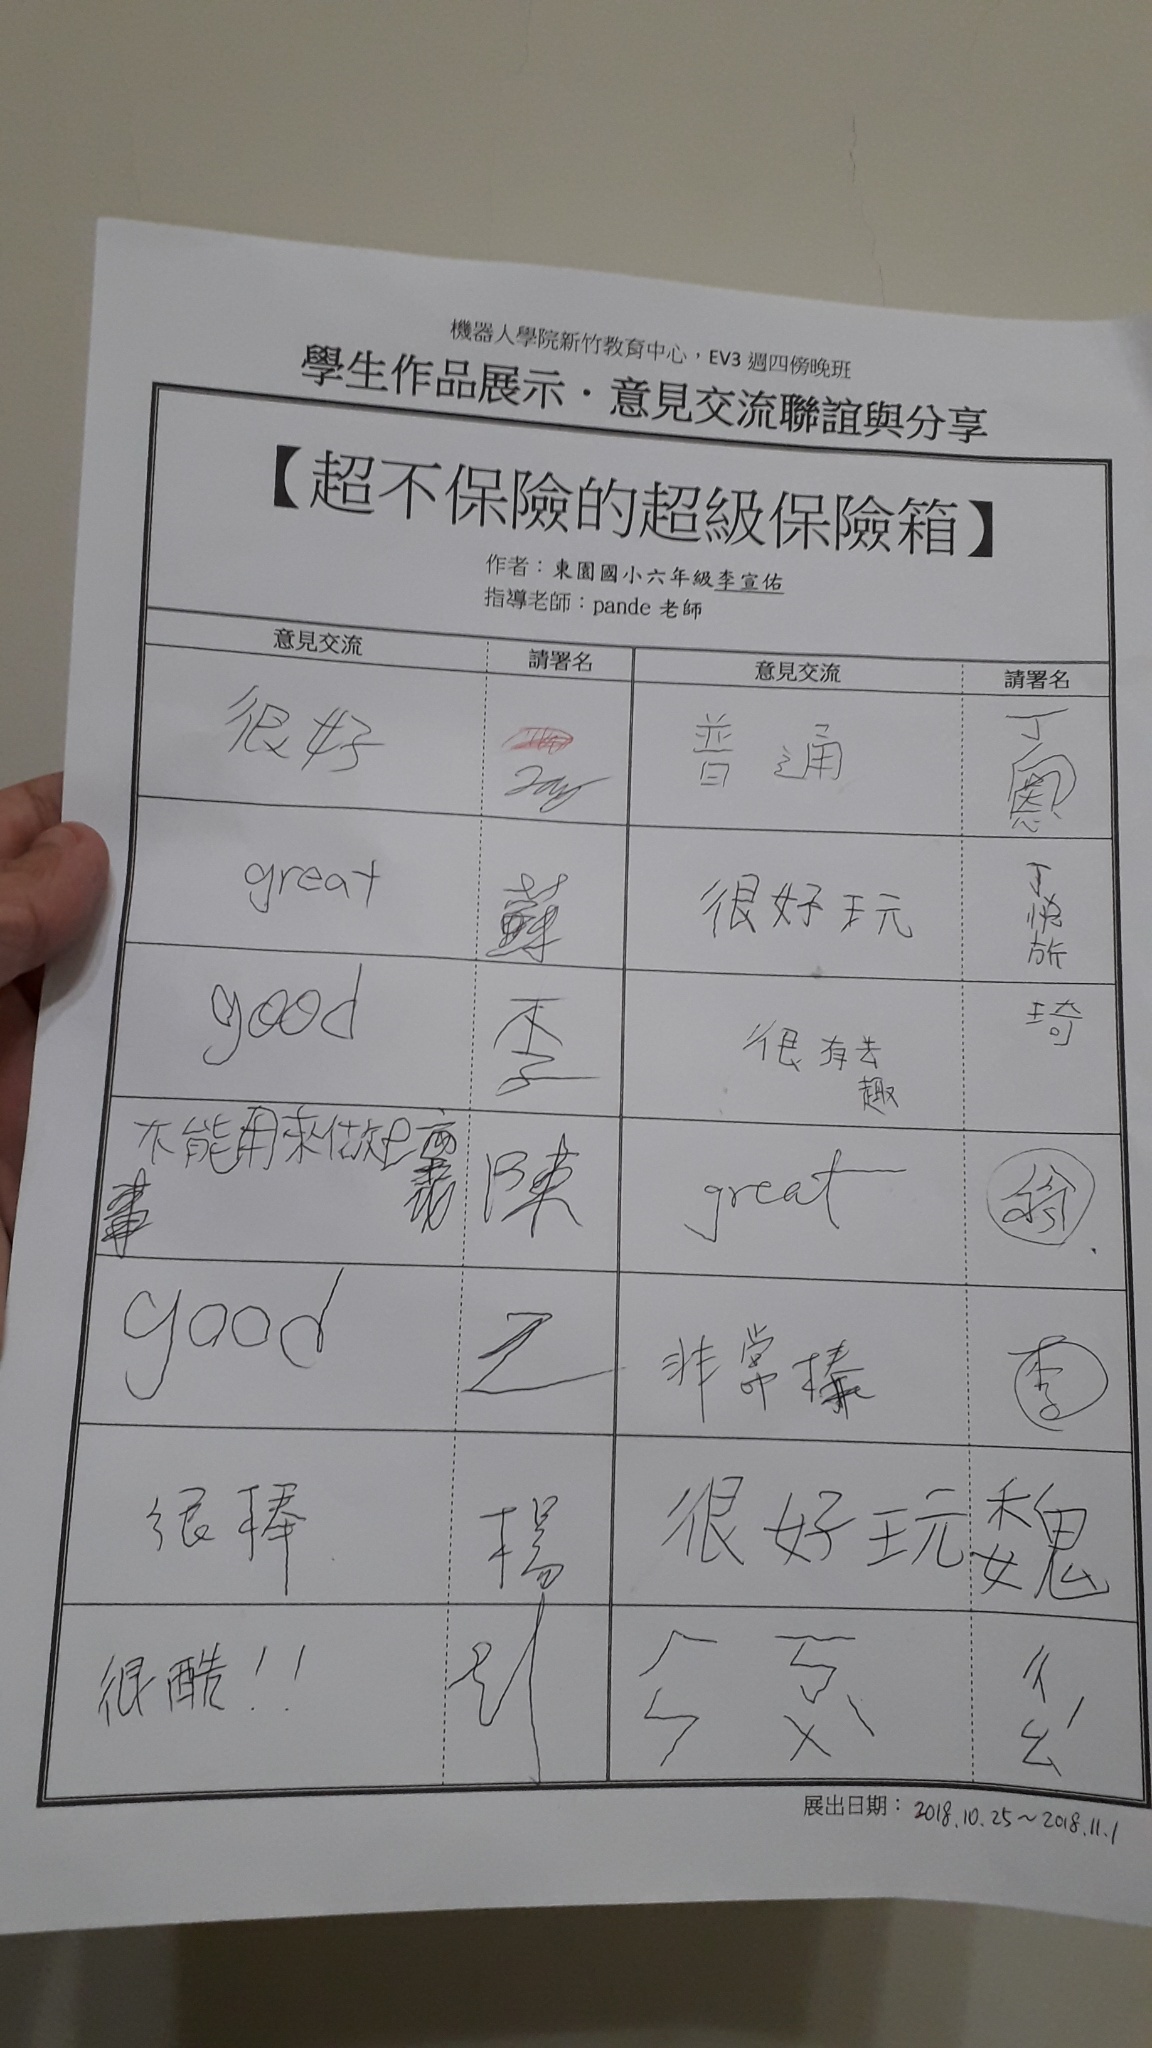 機器人學院新竹教育中心，EV3 週四傍晚班
學生作品展示．意見交流聯誼與分享
【超不保險的超級保險箱】
作者：東園國小六年級李宣佑
指導老師：pande 老師
意見交流 請署名 意見交流 請署名
很好 普通 丁
great 蘇 很好玩 丁悅旂
good 李 很有去 琦
趣
不能用來做 陳 great 翁
事
good 乙 非常棒 李
很棒 楊 很好玩 魏
很酷!!
展出日期：2018.10.25～2018.11.1